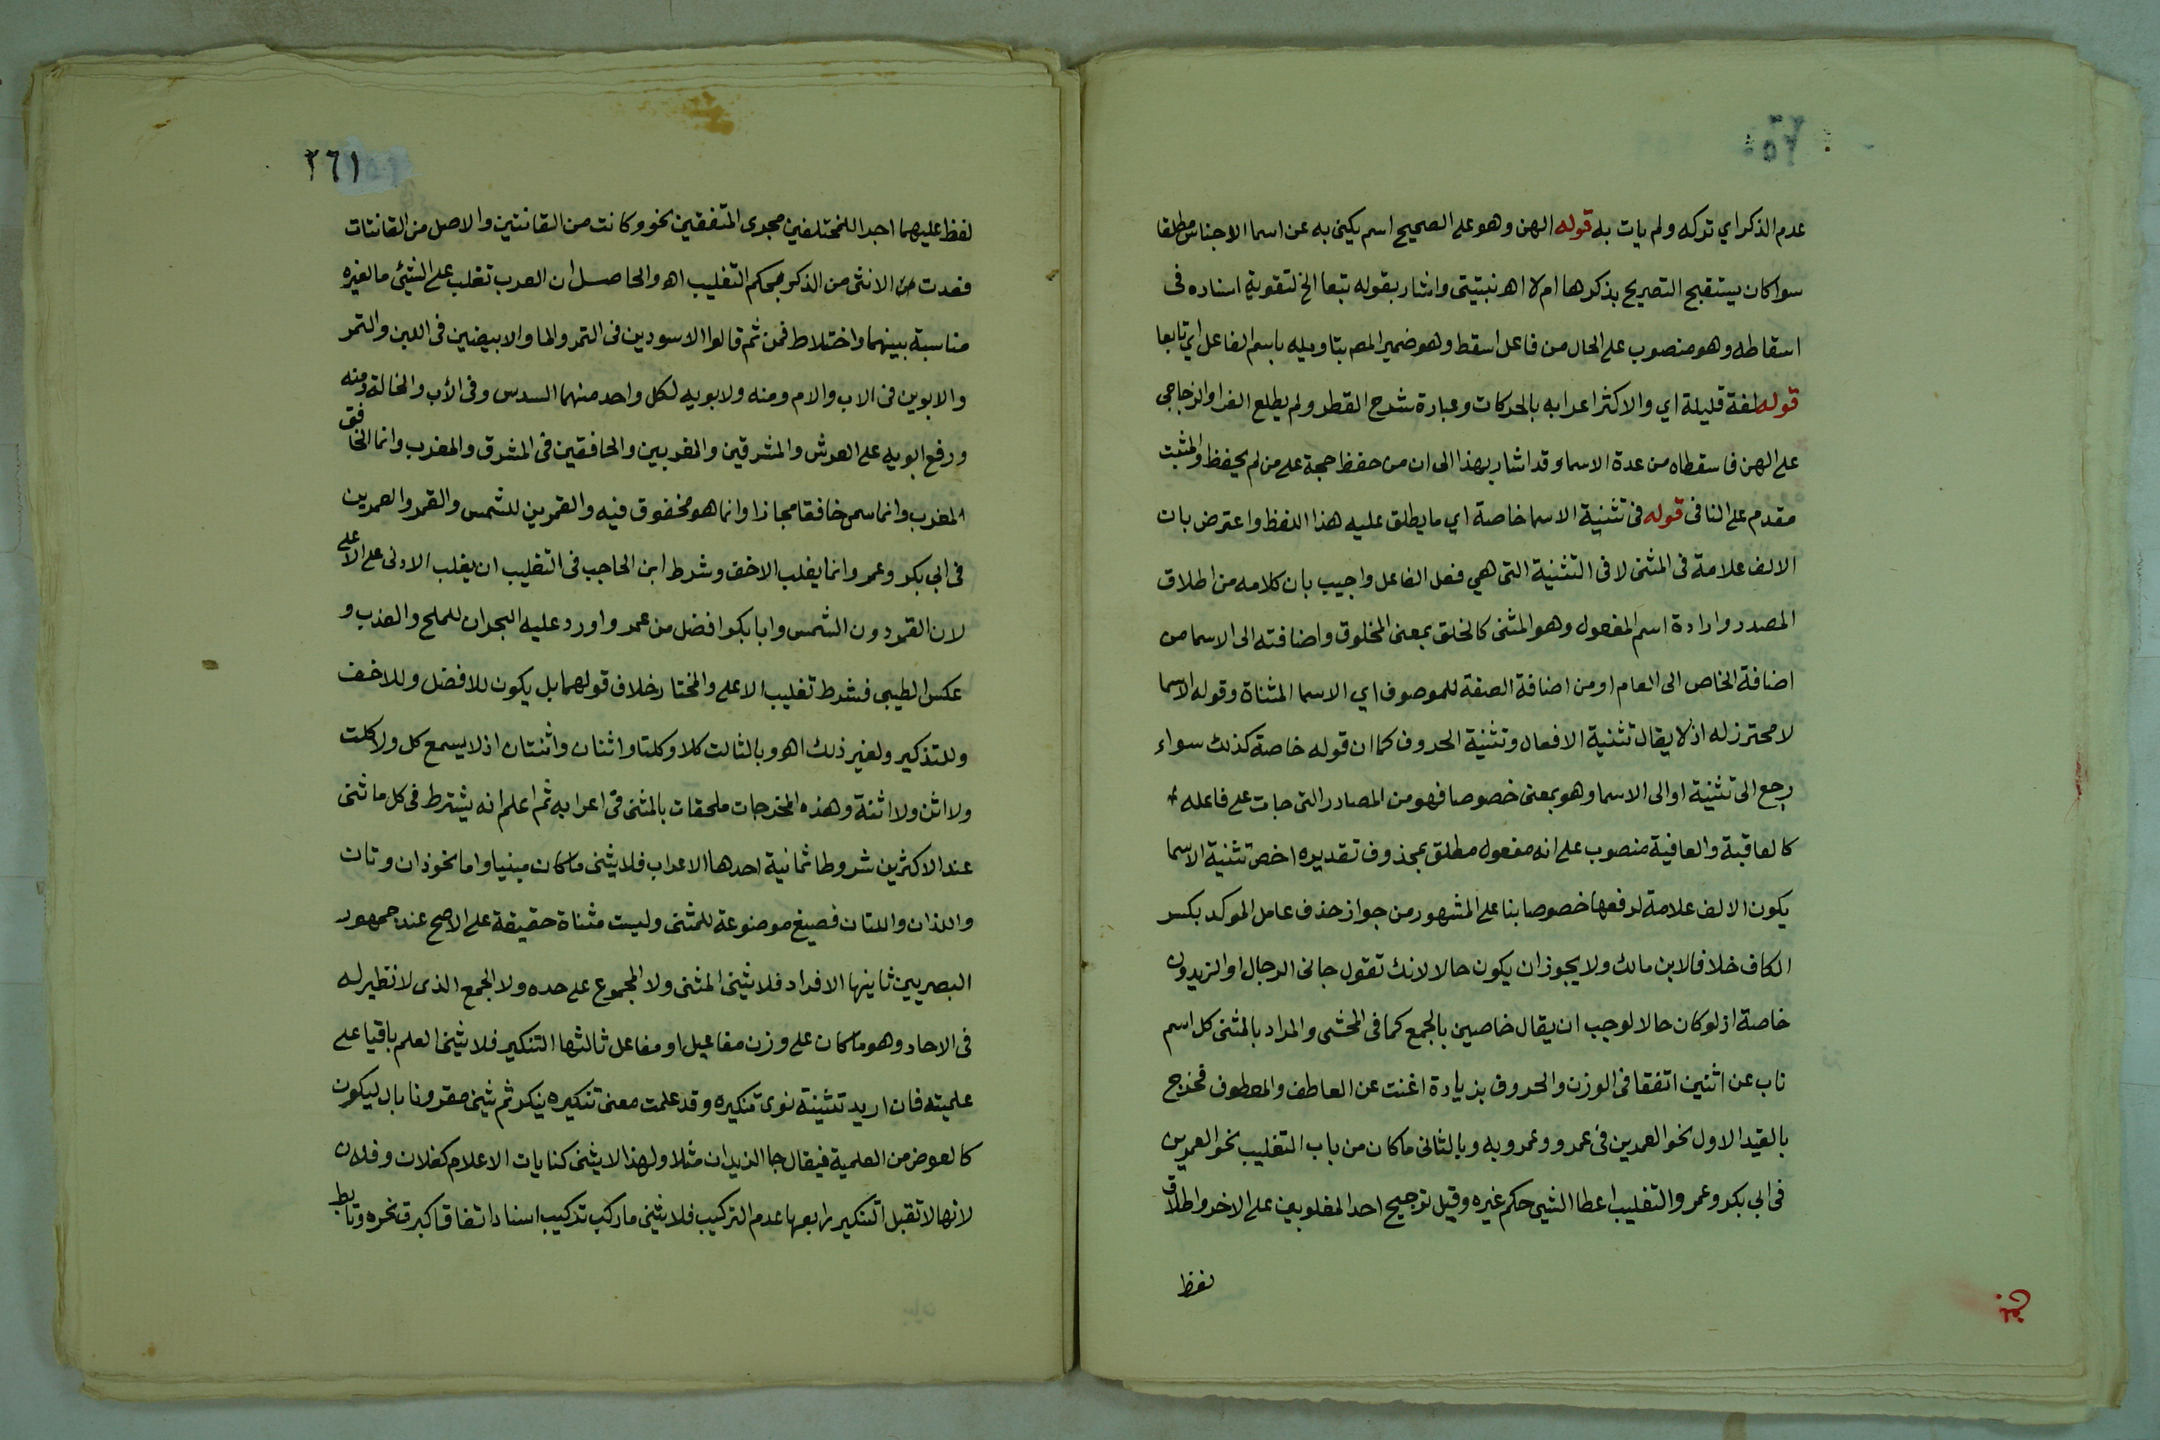 عدم الذكر اي تركه ولم يات به قوله الهن وهو على الصحيح اسم يكنى به عن اسما الاجناس مطلقا
سوا كان يستقبح التصريح بذكرها ام لا اهـ نبتيتى واشار بقوله تبعا الخ لتقوية اسناده فى
اسقاطه وهو منصوب على الحال من فاعل اسقط وهو ضمير المص بتاويله باسم الفاعل اي تابعا
قوله لغة قليلة اي والاكثر اعرابه بالحركات وعبارة شرح القطر ولم يطلع الفرا والزجاجي
على الهن فاسقطاه من عدة الاسما وقد اشار بهذا الى ان من حفظ حجة على من لم يحفظ والمثبت
مقدم على النافى قوله فى تثنية الاسما خاصة اي ما يطلق عليه هذا اللفظ واعترض بان
الالف علامة فى المثنى لا فى التثنية التى هي فعل الفاعل واجيب بان كلامه من اطلاق
المصدر وارادة اسم المفعول وهو المثنى كالخلق بمعنى المخلوق واضافته الى الاسما من
اضافة الخاص الى العام او من اضافة الصفة للموصوف اي الاسما المثناة وقوله الاسما
لا محترز له اذ لا يقال تثنية الافعال وتثنية الحروف كما ان قوله خاصة كذلك سواء
رجع الى تثنية او الى الاسما وهو بمعنى خصوصا فهو من المصادر التى جات على فاعله
كالعاقبة والعافية منصوب على انه مفعول مطلق بمحذوف تقديره اخص تثنية الاسما
يكون الالف علامة لرفعها خصوصا بنا على المشهور من جواز حذف عامل الموكد بكسر
الكاف خلافا لابن مالك ولا يجوز ان يكون حالا لانك تقول جانى الرجال او الزيدون
خاصة اذ لو كان حالا لوجب ان يقال خاصين بالجمع كما فى المحشى والمراد بالمثنى كل اسم
ناب عن اثنين اتفقا فى الوزن والحروف بزيادة اغنت عن العاطف والمعطوف فخرج
بالقيد الاول نحو العمرين فى عمرو وعمرويه وبالثانى ما كان من باب التغليب نحو العمرين
فى ابي بكر وعمر والتغليب اعطا الشي حكم غيره وقيل ترجيح احد المغلوبين على الاخر واطلاق
لفظ
٢٦١
لفظ عليهما اجرا للمختلفين مجرى المتفقين نحو وكانت من القانتين والاصل من القانتات
فعدت الانثى من الذكر بحكم التغليب اهـ والحاصل ان العرب تغلب على الشيئ ما لغيره
مناسبة بينهما واختلاط فمن ثم قالوا الاسودين فى التمر والما والابيضين فى اللبن والتمر
والابوين فى الاب والام ومنه ولابويه لكل واحد منهما السدس وفى الأب والخالة ومنه
ورفع ابويه على العرش والمشرقين والمغربين والخافقين فى المشرق والمغرب وانما الخافق
المغرب وانما سمى خافقا مجازا وانما هو مخفوق فيه والقمرين للشمس والقمر والعمرين
فى ابي بكر وعمر وانما يغلب الاخف وشرط ابن الحاجب فى التغليب ان يغلب الادنى على الاعلى
لان القمر دون الشمس وابا بكر افضل من عمر واورد عليه البحران للملح والعذب و
عكس الطيبى فشرط تغليب الاعلى والمختار خلاف قولهما بل يكون للافضل وللاخف
وللتذكير ولغير ذلك اهـ وبالثالث كلا وكلتا واثنان واثنتان اذ لا يسمع كل ولا كلت
ولا اثن ولا اثنة وهذه المخرجات ملحقات بالمثنى فى اعرابه ثم اعلم انه يشترط فى كل ما ثنى
عند الاكثرين شروطا ثمانية احدها الاعراب فلا يثنى ما كان مبنيا واما نحو ذان وتان
واللذان واللتان فصيغ موضوعة للمثنى وليست مثناة حقيقة على الاصح عند جمهور
البصريين ثانيها الافراد فلا يثنى المثنى ولا المجموع على حده ولا الجمع الذى لا نظير له
فى الاحاد وهو ما كان على وزن مفاعيل او مفاعل ثالثها التنكير فلا يثنى العلم باقيا على
علميته فان اريد تثنيته نوى تنكيره وقد علمت معنى تنكيره ينكر ثم يثنى مقرونا بال ليكون
كالعوض من العلمية فيقال جا الزيدان مثلا ولهذا لا يثنى كنايات الاعلام كفلان وفلان
لانها لا تقبل التنكير رابعها عدم التركيب فلا يثنى ما ركب تركيب اسناد اتفاقا كبرق نحره وتابط